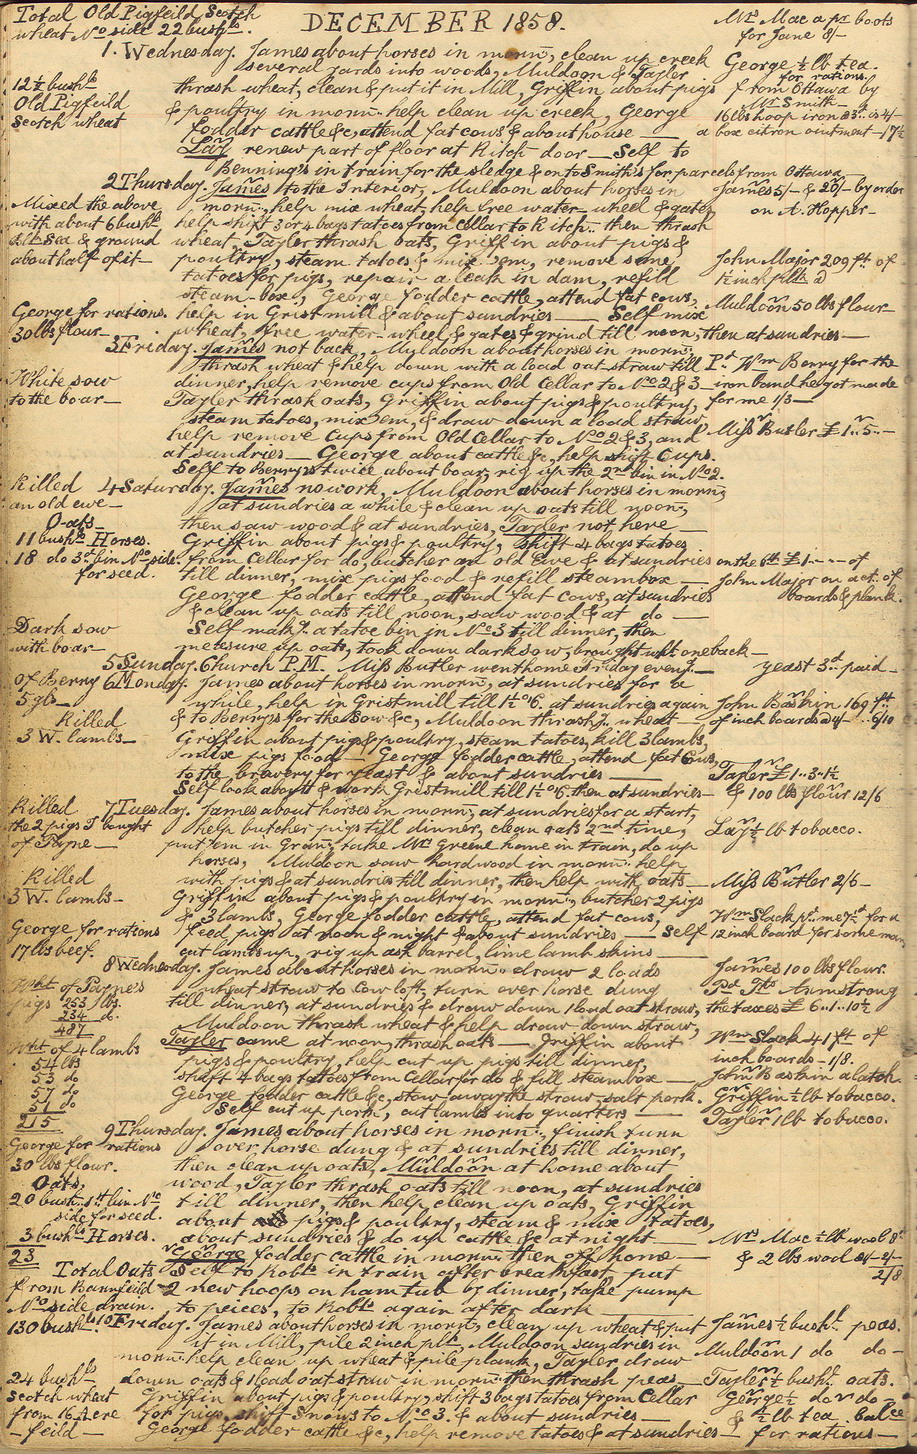 Total Old Pigfeild Scotch
wheat No side 22 bushls.
DECEMBER 1858.
Mrs Mac a pr boots
for Jane 8/-
1. Wednesday. James about horses in morng, clean up creek
several yards into woods, Muldoon & Tayler
George ½ lb tea.
for rations.
12½ bushls
thrash wheat, clean & put it in Mill, Griffin about pigs
from Ottawa by
Mr Smith
Old Pigfeild
& poultry in morng. help clean up creek, George
16 lbs hoop iron
Scotch wheat
fodder cattle &c, attend fat cows & about house
a box citron ointment - 1/7½
Lay renew part of floor at Kitch door - Self to
Benning's in train for the sledge & on to Smith's for parcels from Ottawa
2 Thursday. James to the Interior, Muldoon about horses in
James 5/- & 26/- by order
on A. Hopper -
Mixed the above
morng, help mix wheat, help free water-wheel & gates,
with about 6 bushls
help shift 3 or 4 bags tatoes from Cellar to Kitch. then thrash
& ground
wheat, Tayler thrash oats, Griffin about pigs &
about half of it -
poultry, steam tatoes & mix 'em, remove some
John Major 209 ft. of
tatoes for pigs, repair a leak in dam, refill
½ inch
steam-box, George fodder cattle, attend fat cows,
George for rations.
help in Gristmill & about sundries - Self mix
Muldoon 50 lbs flour
30 lbs flour -
wheat, free water-wheel & gates & grind till noon, then at sundries -
3 Friday. James not back, Muldoon about horses in morng.
thrash wheat & help down with a load oat-straw till
Pd. Wm Berry for the
White sow
dinner, help remove cups from Old Cellar to No. 2 & 3
iron band he got made
to the boar -
Tayler thrash oats, Griffin about pigs & poultry,
for me 1/3 -
steam tatoes, mix 'em, & draw down a load straw,
help remove cups from Old Cellar to No 2 & 3, and
Miss Butler £1..5..-
at sundries - George about cattle &c, help shift Cups.
Self to Berry's twice about boar, rig up the 2nd bin in No 2.
Killed
4 Saturday. James no work, Muldoon about horses in morng
an old ewe -
at sundries a while & clean up oats till noon,
Oats -
then saw wood & at sundries, Tayler not here -
11 bushls Horses.
Griffin about pigs & poultry, shift 4 bags tatoes
18 do 3d bin No. side.
from Cellar for do, butcher an old Ewe & at sundries
on the 6th £1..-..- of
for seed.
till dinner, mix pigs food & refill steambox -
John Major on act. of
George fodder cattle, attend fat cows, at sundries
boards & plank.
& clean up oats till noon, saw wood & at do -
Dark sow
Self makg. a tatoe bin in No 3 till dinner, then
with boar -
measure up oats, took down dark sow, brought wht one back -
5 Sunday. Church P.M. Miss Butler went home Friday eveng. -
yeast 3d. paid -
of Berry
6 Monday. James about horses in morng, at sundries for a
5 gls -
while, help in Gristmill till 1½ o'C. at sundries again
John Baskin 169 ft.
Killed
& to Berry's for the Sow &c, Muldoon thrashg. wheat -
of inch boards
3 W. lambs -
Griffin about pigs & poultry, steam tatoes, kill 3 lambs,
mix pigs food - George fodder cattle, attend fat Cows,
to the brewery for yeast & about sundries -
Tayler £1..3..1½
Self look about & work Gristmill till 1½ o'C. then at sundries -
& 100 lbs flour 12/6
Killed
7 Tuesday. James about horses in morng, at sundries for a start,
the 2 pigs I bought
help butcher pigs till dinner, clean oats 2nd time,
Lay ½ lb tobacco.
of Payne -
put 'em in Grany, take Mrs Greene home in train, do up
horses, Muldoon saw hardwood in morng. help
Killed
with pigs & at sundries till dinner, then help with oats -
Miss Butler 2/6 -
3 W. lambs -
Griffin about pigs & poultry in morng, butcher 2 pigs
& 3 lambs, George fodder cattle, attend fat cows,
Wm Slack pd. me 7½d for a
George for rations
feed pigs at noon & night & about sundries - Self
12 inch board for some man
17 lbs beef.
cut lambs up, rig up ash barrel, lime lamb skins -
8 Wednesday. James about horses in morng. draw 2 loads
James 100 lbs flour.
Wht of Payne's
wheat straw to Cow loft, turn over horse dung
Pd. Jno Armstrong
pigs 253 lbs.
till dinner, at sundries & draw down 1 load oat straw,
the taxes £6..1..10½
234 do.
487
Muldoon thrash wheat & help draw down straw,
Wht of 4 lambs
Tayler came at noon, thrash oats - Griffin about
Wm Slack 41 ft of
54 lbs
pigs & poultry, help cut up pigs till dinner,
inch boards - 1/8.
53 do
shift 4 bags tatoes from Cellar for do & fill steambox -
John Baskin a latch.
57 do
George fodder cattle &c, stow away the straw, salt pork.
Griffin ½ lb tobacco.
51 do
Self cut up pork, cut lambs into quarters -
Tayler 1 lb tobacco.
215
9 Thursday. James about horses in morng., finish turn
George for rations
over horse dung & at sundries till dinner,
30 lbs flour.
then clean up oats, Muldoon at home about
Oats,
wood, Tayler thrash oats till noon, at sundries
20 bush. 1st bin No
till dinner, then help clean up oats, Griffin
side for seed.
about pigs & poultry, steam & mix tatoes,
3 bushls Horses.
about sundries & do up cattle &c at night -
Mrs Mac ½ lb wool 8d
23
George fodder cattle in morng then off home -
& 2 lbs wool
2/8
Total Oats
Self to Robts. in train after breakfast put
from Barnfeild
2 new hoops on ham tub by dinner, take pump
No side drain.
to peices, to Robts again after dark
130 bushls.
10 Friday. James about horses in morng, clean up wheat & put
James ½ bushl peas.
it in Mill, pile 2 inch plk, Muldoon sundries in
Muldoon 1 do do -
morng. help clean up wheat & pile plank, Tayler draw
24 bushls
down oats & 1 load oat straw in morng. then thrash peas -
Tayler ½ bushl. oats.
Scotch wheat
Griffin about pigs & poultry, shift 3 bags tatoes from Cellar
George ½ do do -
from 16 Acre
for pigs, shift 3 sows to No 3. & about sundries -
& ½ lb tea balce
- feild -
George fodder cattle &c, help remove tatoes & at sundries -
for rations -